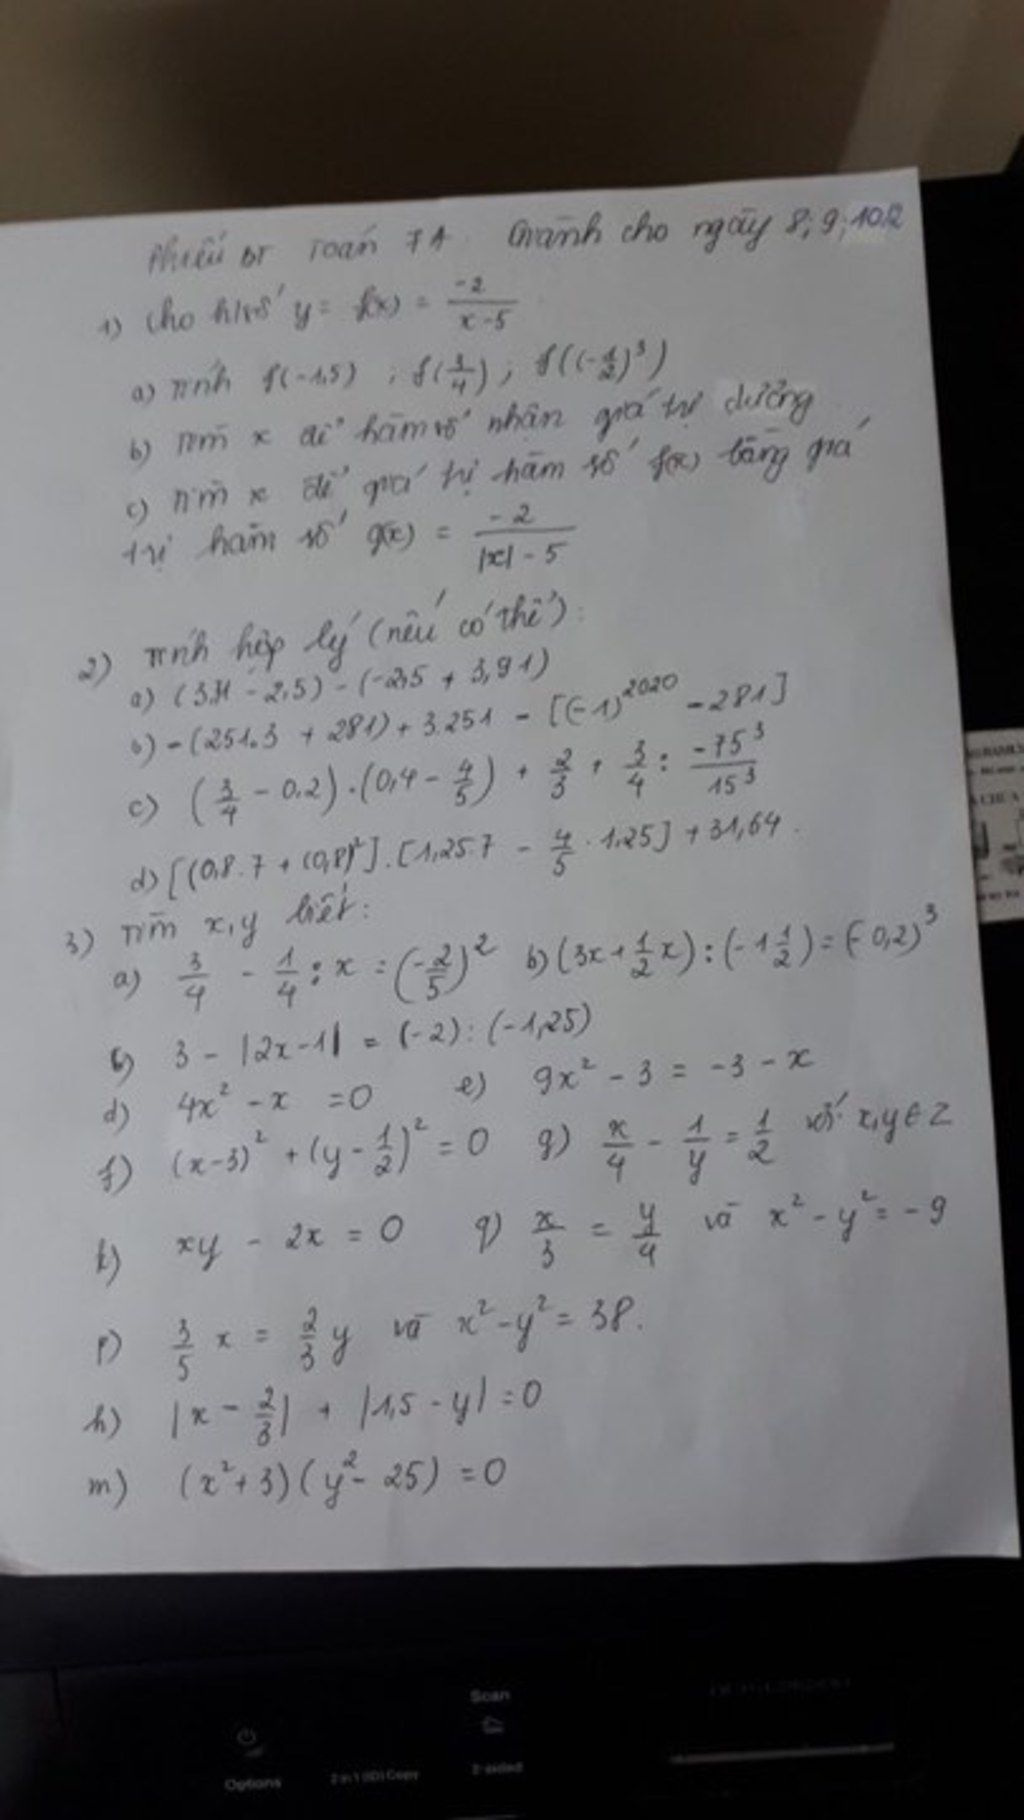 Phiếu BT Toán 7A. Dành cho ngày 8; 9; 10.2
1) Cho h/số y = f(x) = -2/(x-5)
a) Tính f(-1,5) ; f(3/4) ; f((-1/2)³)
b) Tìm x để hàm số nhận giá trị dương
c) Tìm x để giá trị hàm số f(x) bằng giá
trị hàm số g(x) = -2/(|x| - 5)
2) Tính hợp lý (nếu có thể):
a) - 2,5) - (-2,5 + 3,91)
b) - (251.3 + 281) + 3.251 - [(-1)²⁰²⁰ - 281]
c) (3/4 - 0,2) . (0,4 - 4/5) + 2/3 + 3/4 : -75³/15³
d) [(0,8.7 + (0,8)²] . [1,25.7 - 4/5 . 1,25] + 31,64.
3) Tìm x,y biết:
a) 3/4 - 1/4 : x = (-2/5)² b) (3x + 1/2 x) : (-1 1/2) = (-0,2)³
3 - |2x - 1| = (-2) : (-1,25)
d) 4x² - x = 0 e) 9x² - 3 = -3 - x
f) (x-3)² + (y - 1/2)² = 0 g) x/4 - 1/y = 1/2 với x,y ∈ Z
k) xy - 2x = 0 q) x/3 = y/4 và x² - y² = -9
p) 3/5 x = 2/3 y và x² - y² = 38.
h) |x - 2/3| + |1,5 - y| = 0
m) (x² + 3)(y² - 25) = 0
Scan
Options
2-sided